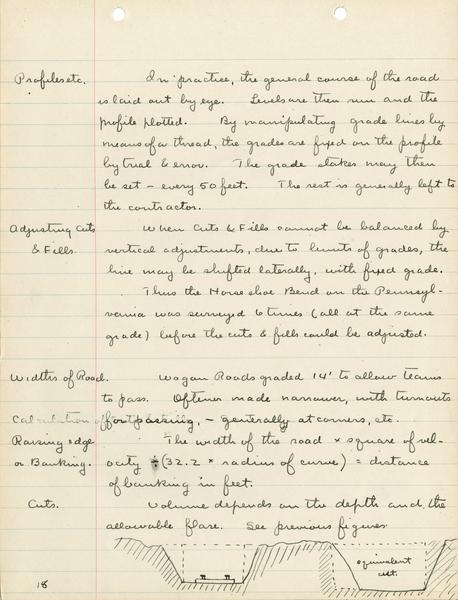 Profiles etc. In practice, the general course of the road
is laid out by eye. Levels are then run and the
profile plotted. By manipulating grade lines by
means of a thread, the grades are fixed on the profile
by trial & error. The grade stakes may then
be set – every 50 feet. The rest is generally left to
the contractor.
Adjusting Cuts When Cuts & Fills cannot be balanced by
& Fills. vertical adjustments, due to limits of grades, the
line may be shifted laterally, with fixed grade.
Thus the Horse shoe Bend on the Pennsyl-
vania was surveyed 6 times (all at the same
grade) before the cuts & fills could be adjusted.
Widths of Road. Wagon Roads graded 14' to allow teams
to pass. Oftener made narrower, with turnouts
for passing, – generally at corners, etc.
Raising edge The width of the road × square of vel-
or Banking. ocity ÷ (32.2 × radius of curve) = distance
of banking in feet.
Cuts. Volume depends on the depth and the
allowable flare. See previous figures
equivalent
cut.
18